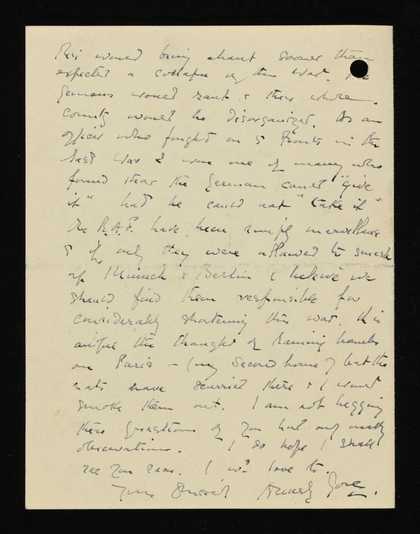 This would bring about sooner than
expected a collapse of this War. The
Germans would rank & their whole
country would be disorganized. As an
officer who fought on 5 Fronts in the
last War I was one of many who
found that the German could "give
it" but he could not "take it"
The R.A.F. have been simply marvellous
& if only they were allowed to smash
up Munich & Berlin I believe we
should find them responsible for
considerably shortening this war. It is
awful the thought of Raining bombs
on Paris – (my second home) but the
rats have scurried there & I want
smoke them out. I am not begging
these questions of you but only making
observations. I do hope I shall
see you soon. I wd love to.
Yours Sincerely